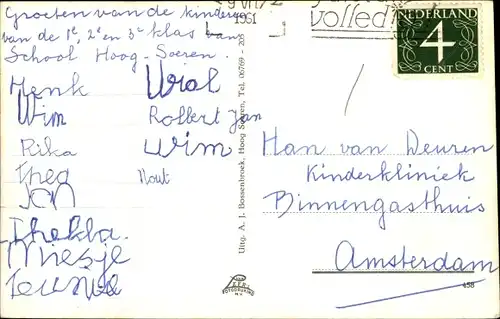 Groeten van de kinderen
van de 1e, 2e en 3e klas van
School Hoog-Soeren.
Henk
Wim
Rika
Thea
Jan
Thekla.
Miesje
Teunie
Robbert Jan
Wim
Wout
Uitg. A. J. Bossenbroek, Hoog Soeren, Tel. 06769 - 205
1961
volled
NEDERLAND
4
CENT
Han van Deuren
Kinderkliniek
Binnengasthuis
Amsterdam
458